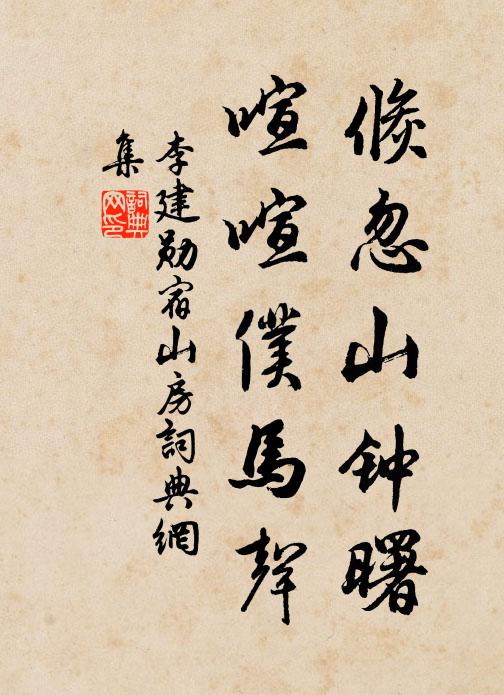 倏忽山钟曙
喧喧僕馬聲
李建勋宿山房詞典網
集
詞典网印